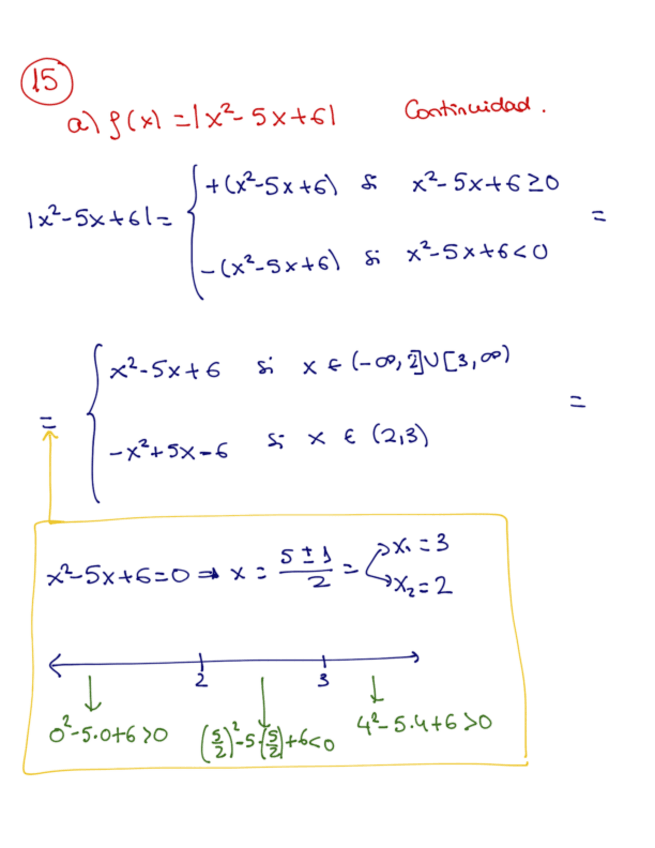 15
a) f(x) = |x²-5x+6| Continuidad.
|x²-5x+6| = { +(x²-5x+6) si x²-5x+6≥0
-(x²-5x+6) si x²-5x+6<0 =
= { x²-5x+6 si x ∈ (-∞,2]∪[3,∞)
-x²+5x-6 si x ∈ (2,3) =
x²-5x+6=0 ⇒ x = (5±1)/2 = x₁=3
x₂=2
2 3
0²-5·0+6>0 (5/2)²-5·(5/2)+6<0 4²-5·4+6>0